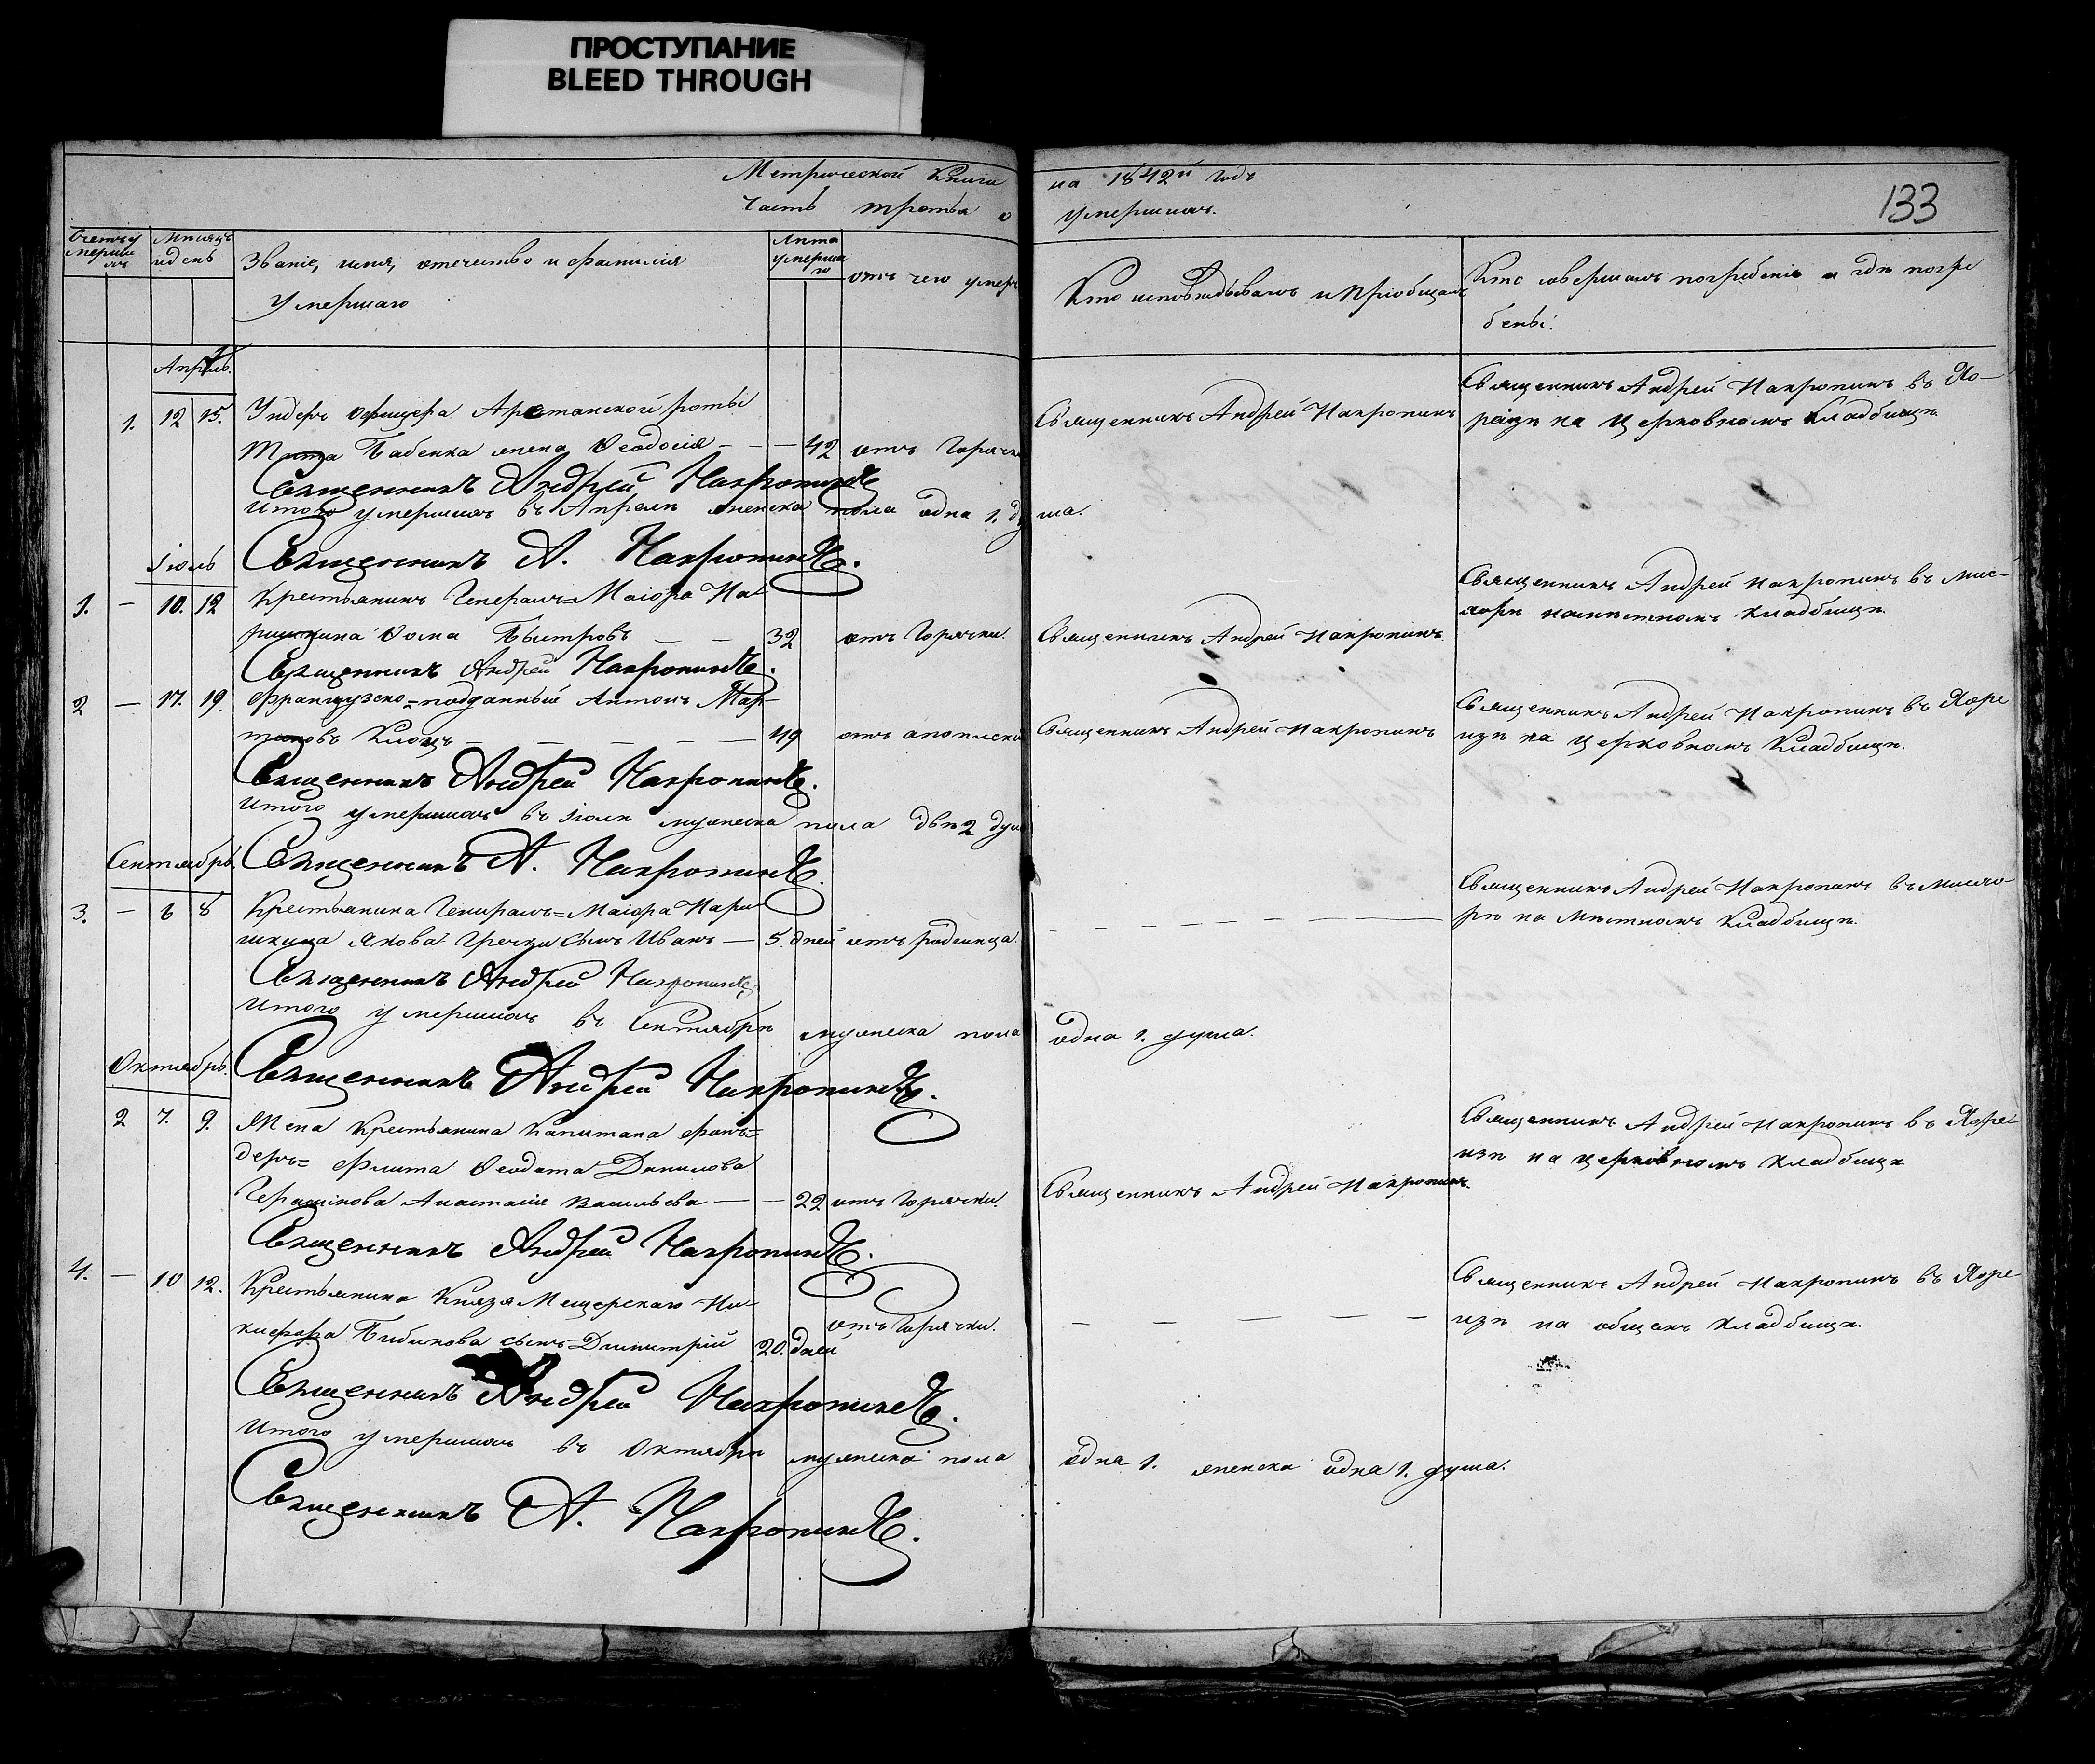 ПРОСТУПАНИЕ
BLEED THROUGH
Метрической Книги на 1842й годъ
Часть третья о умершихъ.
133
Счетъ умершихъ
Мѣсяцъ и день
Званіе, имя, отечество и фамилія
Умершаго
Лѣта умершаго
отъ чего умеръ
Кто исповѣдывалъ и пріобщалъ
Кто совершалъ погребеніе и гдѣ погре
бены.
Апрѣль.
1. 12 15. Ундеръ офицера Арестанской роты
Тита Бабенка жена Ѳеодосія - - - 42 отъ Горячки
Священникъ Андрей Накропинъ
Священникъ Андрей Накропинъ въ Ко-
реизѣ на Церковномъ Кладбищѣ.
Священникъ Андрей Накропинъ
Итого умершихъ въ Апрелѣ женска пола одна 1. душа.
Священникъ А. Накропинъ.
Іюль
1. — 10. 12 Крестьянинъ Генералъ=Маіора На
рышкина Ѳома Быстровъ — — 32 отъ Горячки.
Священникъ Андрей Накропинъ.
Священникъ Андрей Накропинъ въ Мис-
хорѣ на мѣстномъ кладбищѣ.
Священникъ Андрей Накропинъ.
2 — 17. 19. Французско=подданный Антонъ Мар-
— 49 отъ апоплексіи
Священникъ Андрей Накропинъ
Священникъ Андрей Накропинъ въ Коре
изѣ на церковномъ Кладбищѣ.
Священникъ Андрей Накропинъ.
Итого умершихъ въ Іюлѣ мужеска пола двѣ 2 души
Священникъ А. Накропинъ.
Сентябрь.
3. — 6 8 Крестьянина Генералъ=Маіора Нары
шкина Якова Гречки сынъ Иванъ — 5. дней отъ родимца.
Священникъ Андрей Накропинъ въ Мисхо-
рѣ на Мѣстномъ Кладбищѣ.
Священникъ Андрей Накропинъ
Итого умершихъ въ Сентябрѣ мужеска пола одна 1. душа.
Октябрь.
Священникъ Андрей Накропинъ.
2 7. 9. Жена Крестьянина Капитана фонъ=
деръ= Флита Ѳеодота Данилова
Анастасія Васильева — — 22 отъ Горячки.
Священникъ Андрей Накропинъ.
Священникъ Андрей Накропинъ въ Корѣ
изѣ на церковномъ кладбищѣ
Священникъ Андрей Накропинъ.
4. — 10 12. Крестьянина Князя Мещерскаго Ни
кифора Бибикова сынъ=Димитрій 20. дней отъ Горячки.
Священникъ Андрей Накропинъ въ Коре
изѣ на общемъ кладбищѣ.
Священникъ Андрей Накропинъ.
Итого умершихъ въ Октябрѣ мужеска пола одна 1. женска одна 1. душа.
Священникъ А. Накропинъ.